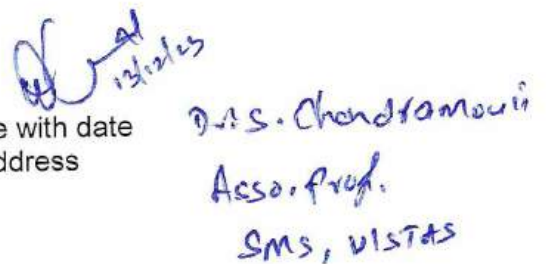 13/12/23
e with date
ddress
Dr. S. Chandramouli
Asso. Prof.
SMS, VISTAS